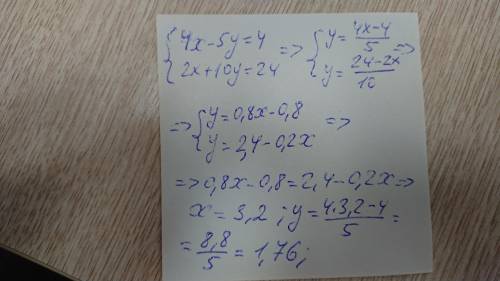 {4x-5y=4 => {y=4x-4/5 =>
{2x+10y=24 {y=24-2x/10
=> {y=0,8x-0,8 =>
{y=2,4-0,2x
=> 0,8x-0,8=2,4-0,2x =>
x=3,2; y=4·3,2-4/5=
=8,8/5=1,76;